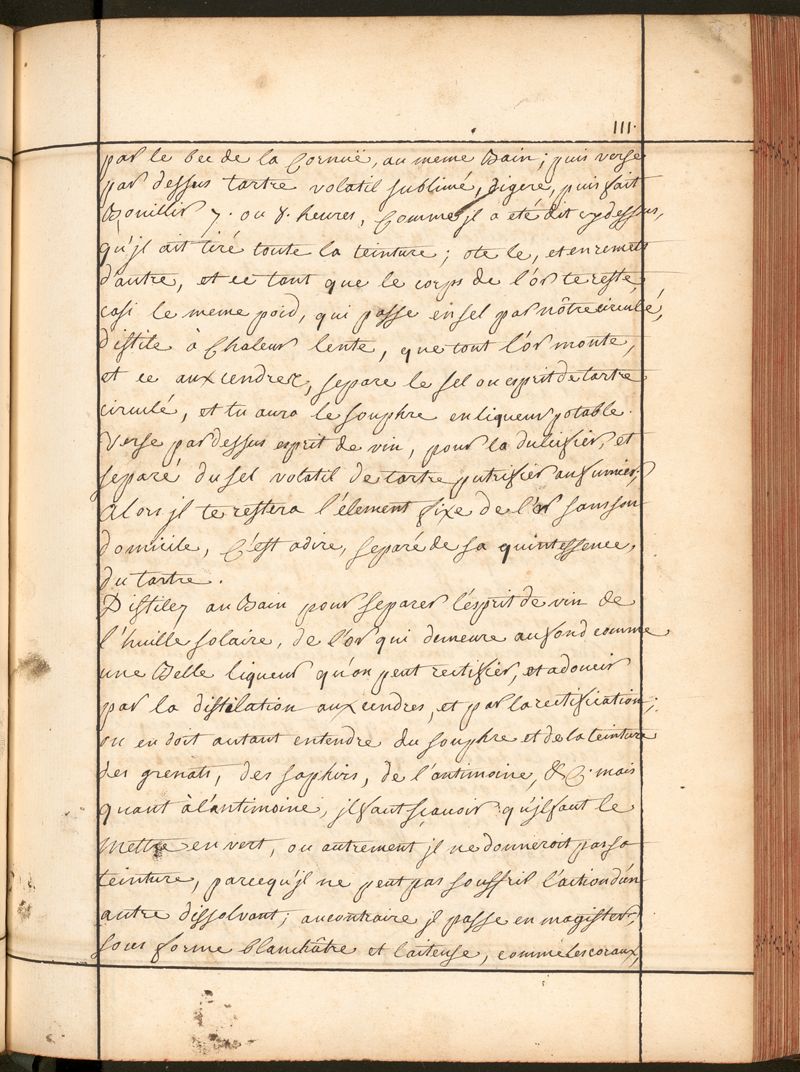 111.
par le bec de la Cornuë, au meme Bain; puis verse
par dessus tartre volatil sublimé, digere, puis fait
Bouillir 7. ou 8. heures, Comme jl a eté dit cy dessus,
qu'jl ait tiré toute la teinture; ote le, et en remets
d'autre, et ce tant que le corps de l'or te reste
casi le meme poid, qui passe en sel par nôtre circulé,
distile à Chaleur lente, que tout l'or monte,
et ce aux cendrez, separe le sel ou esprit de tartre
circulé, et tu aura le souphre en liqueur potable.
Verse par dessus esprit de vin, pour la dulcifier, et
separé du sel volatil de tartre putrifier au fumier;
Alors jl te restera l'élement fixe de l'or sans son
domicile, C'est adire, separé de sa quintessence,
du tartre.
Distilez au Bain pour separer l'esprit de vin de
l'huille solaire, de l'or qui demeure au fond comme
une Belle liqueur qu'on peut rectifier, et adoucir
par la distilation aux cendres, et par la rectification;
on en doit autant entendre du souphre et de la teinture
des grenats, des saphirs, de l'antimoine, &C. mais
quant à l'antimoine, jl faut sçavoir qu'jl faut le
mettre en vert, ou autrement jl ne donneroit pas sa
teinture, parcequ'jl ne peut pas souffrir l'action d'un
autre dissolvant; au contraire jl passe en magister,
sous forme blanchâtre et laiteuse, comme les coraux,